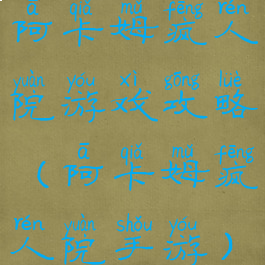 ā qiǎ mǔ fēng rén
阿卡姆疯人
yuàn yóu xì gōng lüè
院游戏攻略
ā qiǎ mǔ fēng
(阿卡姆疯
rén yuàn shǒu yóu
人院手游)